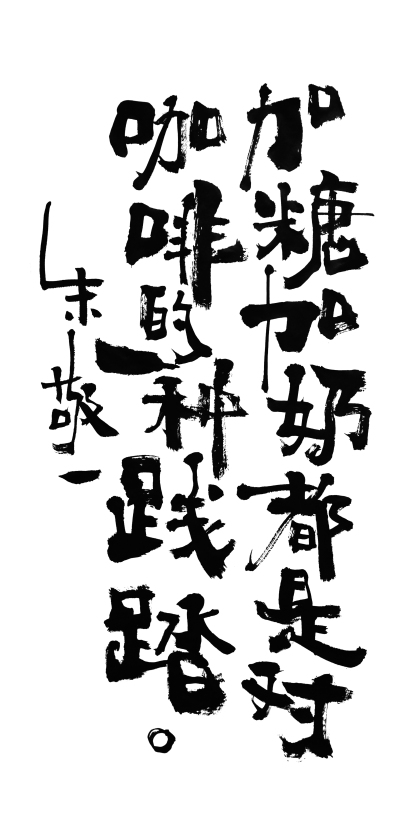 加糖加奶都是对
咖啡的一种践踏。
朱敬一